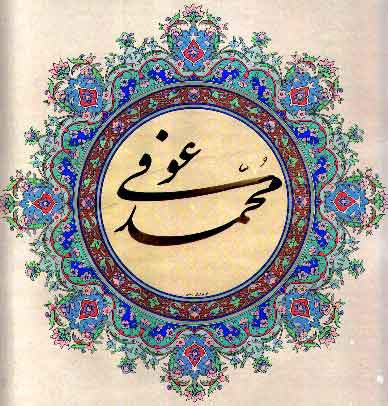 محمد عوفی